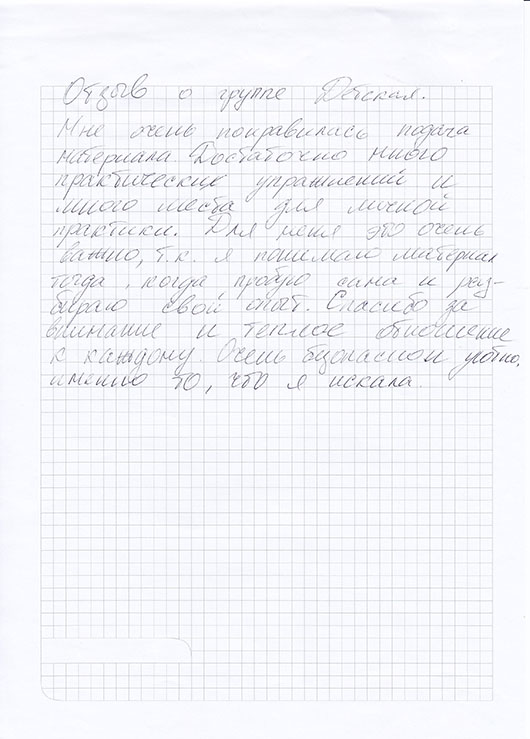 Отзыв о группе Детская.
Мне очень понравилась подача
материала. Достаточно много
практических упражнений и
много места для личной
практики. Для меня это очень
важно, т.к. я понимаю материал
тогда, когда пробую сама и раз-
бираю свой опыт. Спасибо за
внимание и теплое отношение
к каждому. Очень безопасно и уютно,
именно то, что я искала.